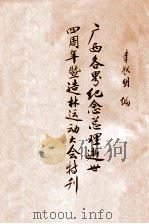 广西各界纪念总理逝世
四周年暨造林运动大会特刊
李秋明 编